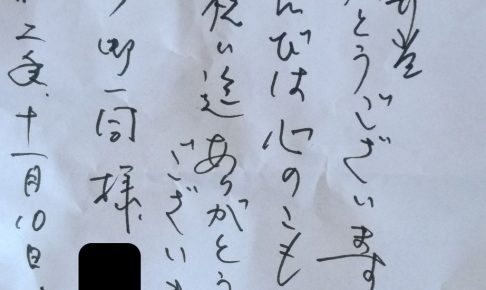 とうございます
びは心のこも
祝い迄ありがとう
ございま
町一同様
二年、十一月10日、